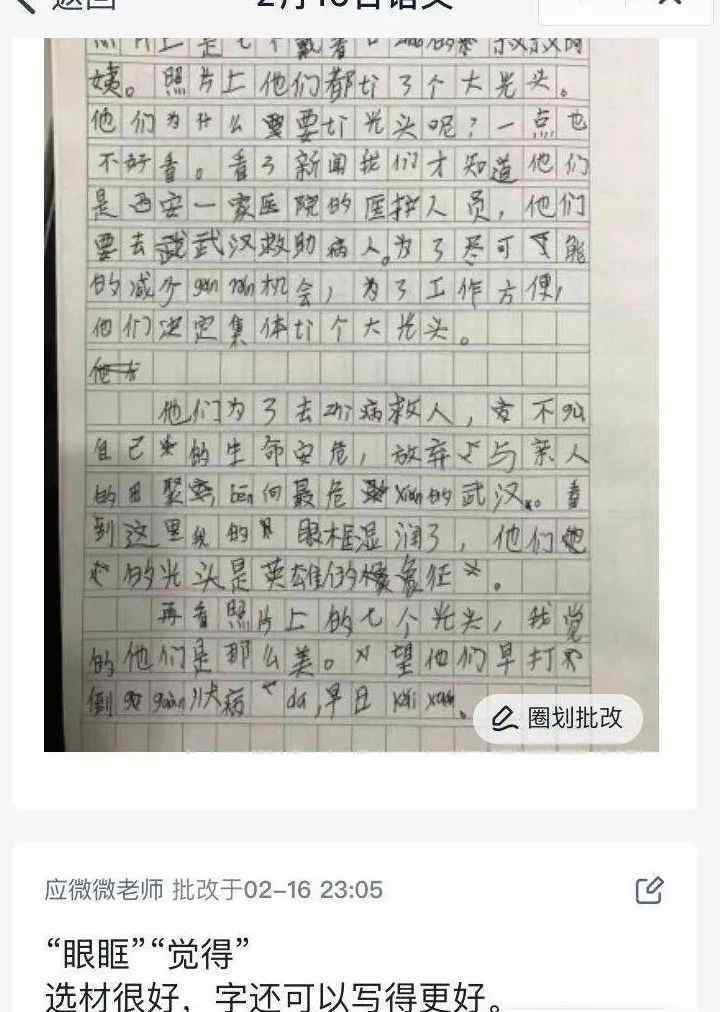 返回
2月16日语文
姨。照片上他们都ti了个大光头。
他们为什么要ti光头呢？一点也
不好看。看了新闻我们才知道他们
是西安一家医院的医护人员，他们
要去武汉救助病人。为了尽可能
的减少gan ran机会，为了工作方便，
他们决定集体ti个大光头。
他们为了去zhi病救人，不gu
自己的生命安危，放弃与亲人
的团聚，ben向最危xian的武汉。看
到这里我的眼框湿润了，他们
的光头是英雄们的象征。
再看照片上的七个光头，我觉
的他们是那么美。望他们早打
倒guan状病du，早日kai xuan。
圈划批改
应微微老师 批改于02-16 23:05
“眼眶”“觉得”
选材很好，字还可以写得更好。